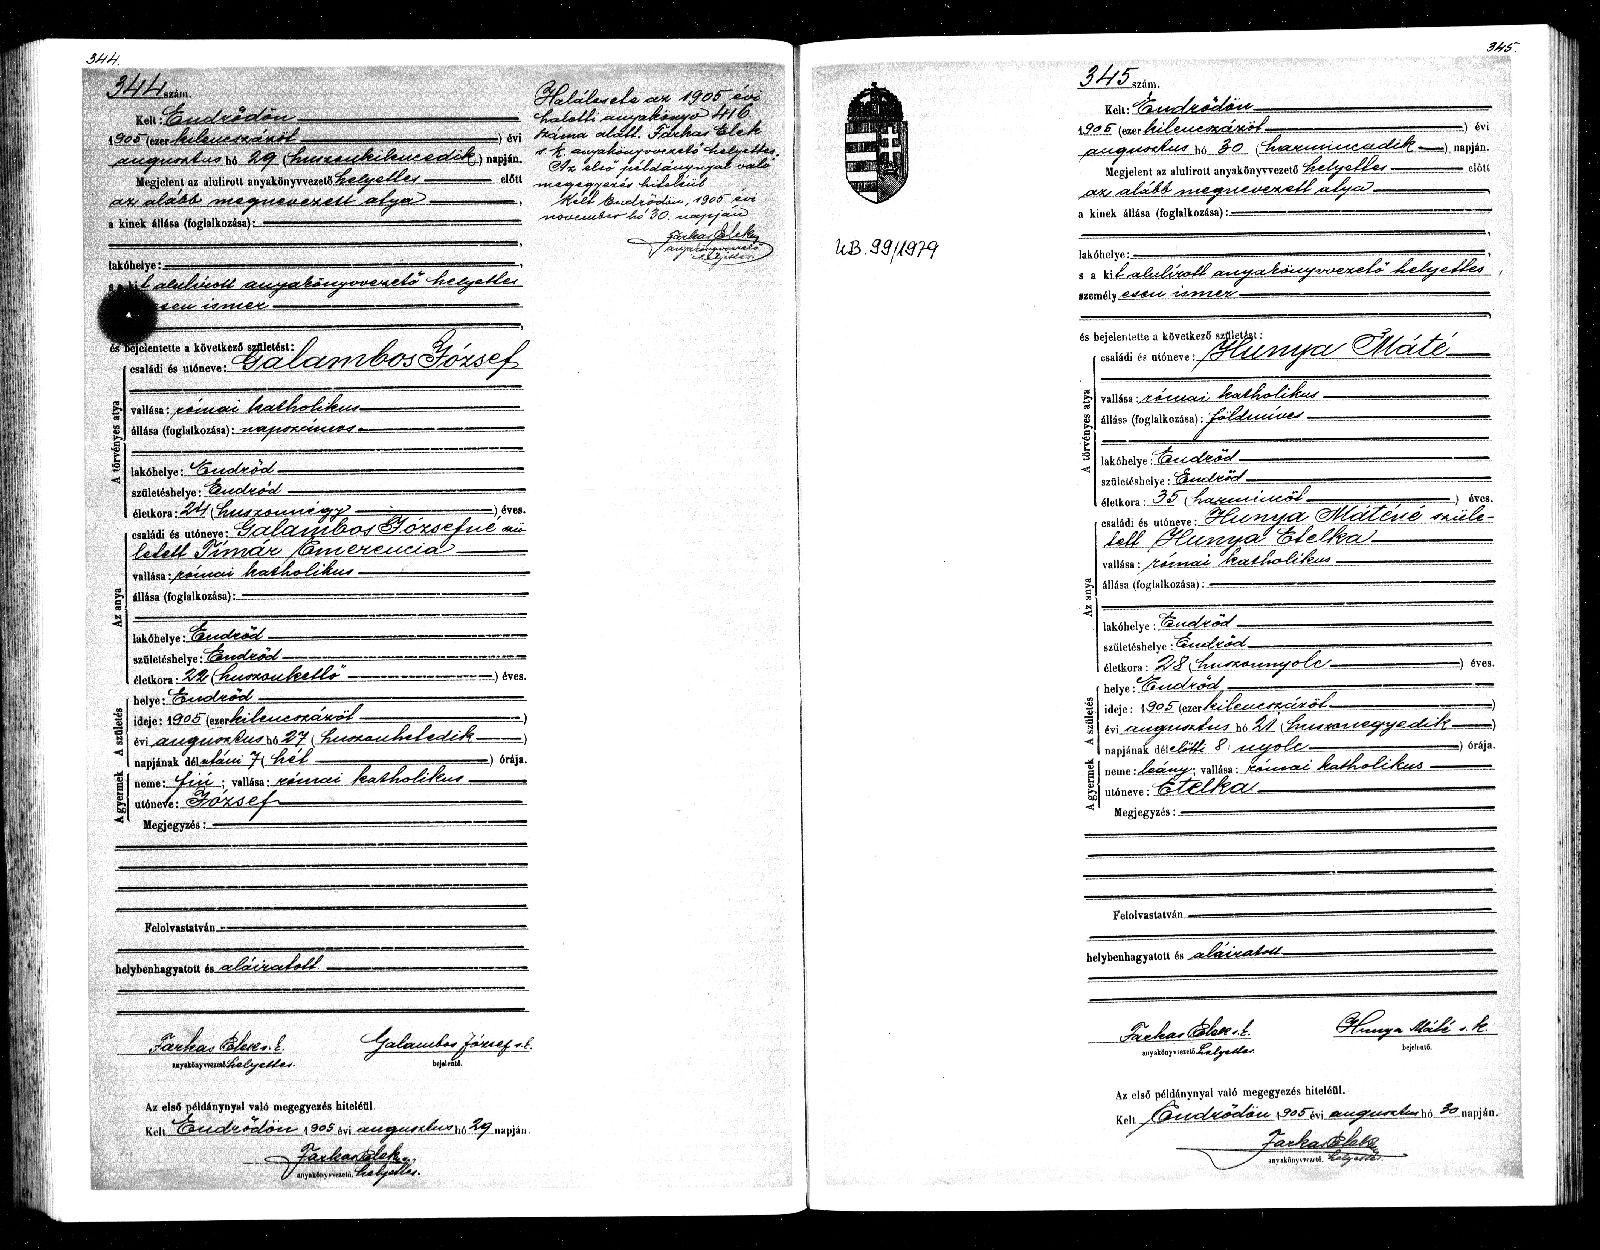 344.
344 szám.
Kelt: Endrődön
1905 (ezer kilencszázöt ) évi
augusztus hó 29 (huszonkilencedik) napján.
Megjelent az alulirott anyakönyvvezető helyettes előtt
az alább megnevezett atya ,
a kinek állása (foglalkozása):
lakóhelye:
s a kit alulírott anyakönyvvezető helyettes
esen ismer
és bejelentette a következő születést:
A törvényes atya
családi és utóneve: Galambos József
vallása: római katholikus
állása (foglalkozása): napszámos
lakóhelye: Endrőd
születéshelye: Endrőd
életkora: 24 (huszonnégy ) éves.
Az anya
családi és utóneve: Galambos Józsefné szü-
letett Tímár Emerencia
vallása: római katholikus
állása (foglalkozása):
lakóhelye: Endrőd
születéshelye: Endrőd
életkora: 22 (huszonkettő ) éves.
A születés
helye: Endrőd
ideje: 1905 (ezer kilencszázöt )
évi augusztus hó 27 (huszonhetedik )
napjának délutáni 7 (hét ) órája.
A gyermek
neme: fiú ; vallása: római katholikus
utóneve: József
Megjegyzés:
Felolvastatván
helybenhagyatott és aláiratott
Farkas Elek s. k. Galambos József s. k.
anyakönyvvezető helyettes. bejelentő.
Az első példánynyal való megegyezés hiteléül.
Kelt Endrődön 1905 évi augusztus hó 29 napján.
Farkas Elek
anyakönyvvezető. helyettes.
Halálesete az 1905 évi
halotti anyakönyv 416
száma alatt. Farkas Elek
s. k. anyakönyvvezető helyettes.
Az első példánynyal való
megegyezés hiteléül
Kelt Endrődön, 1905 évi
november hó 30. napján
Farkas Elek
anyakönyvvezető
helyettes
345.
UB. 99/1979
345 szám.
Kelt: Endrődön
1905 (ezer kilencszázöt ) évi
augusztus hó 30 (harmincadik ) napján.
Megjelent az alulirott anyakönyvvezető helyettes előtt
az alább megnevezett atya ,
a kinek állása (foglalkozása):
lakóhelye:
s a kit alulírott anyakönyvvezető helyettes ,
személyesen ismer
és bejelentette a következő születést:
A törvényes atya
családi és utóneve: Hunya Máté
vallása: római katholikus
állása (foglalkozása): földmíves
lakóhelye: Endrőd
születéshelye: Endrőd
életkora: 35 (harminöt ) éves.
Az anya
családi és utóneve: Hunya Máténé szüle-
tett Hunya Etelka
vallása: római katholikus
állása (foglalkozása):
lakóhelye: Endrőd
születéshelye: Endrőd
életkora: 28 (huszonnyolc ) éves.
A születés
helye: Endrőd
ideje: 1905 (ezer kilencszázöt )
évi augusztus hó 21 (huszonegyedik )
napjának délelőtti 8 (nyolc ) órája.
A gyermek
neme: leány; vallása: római katholikus
utóneve: Etelka
Megjegyzés:
Felolvastatván
helybenhagyatott és aláiratott
Farkas Elek s. k. Hunya Máté s. k.
anyakönyvvezető helyettes bejelentő.
Az első példánynyal való megegyezés hiteléül.
Kelt Endrődön 1905 évi augusztus hó 30 napján.
Farkas Elek
anyakönyvvezető. helyettes